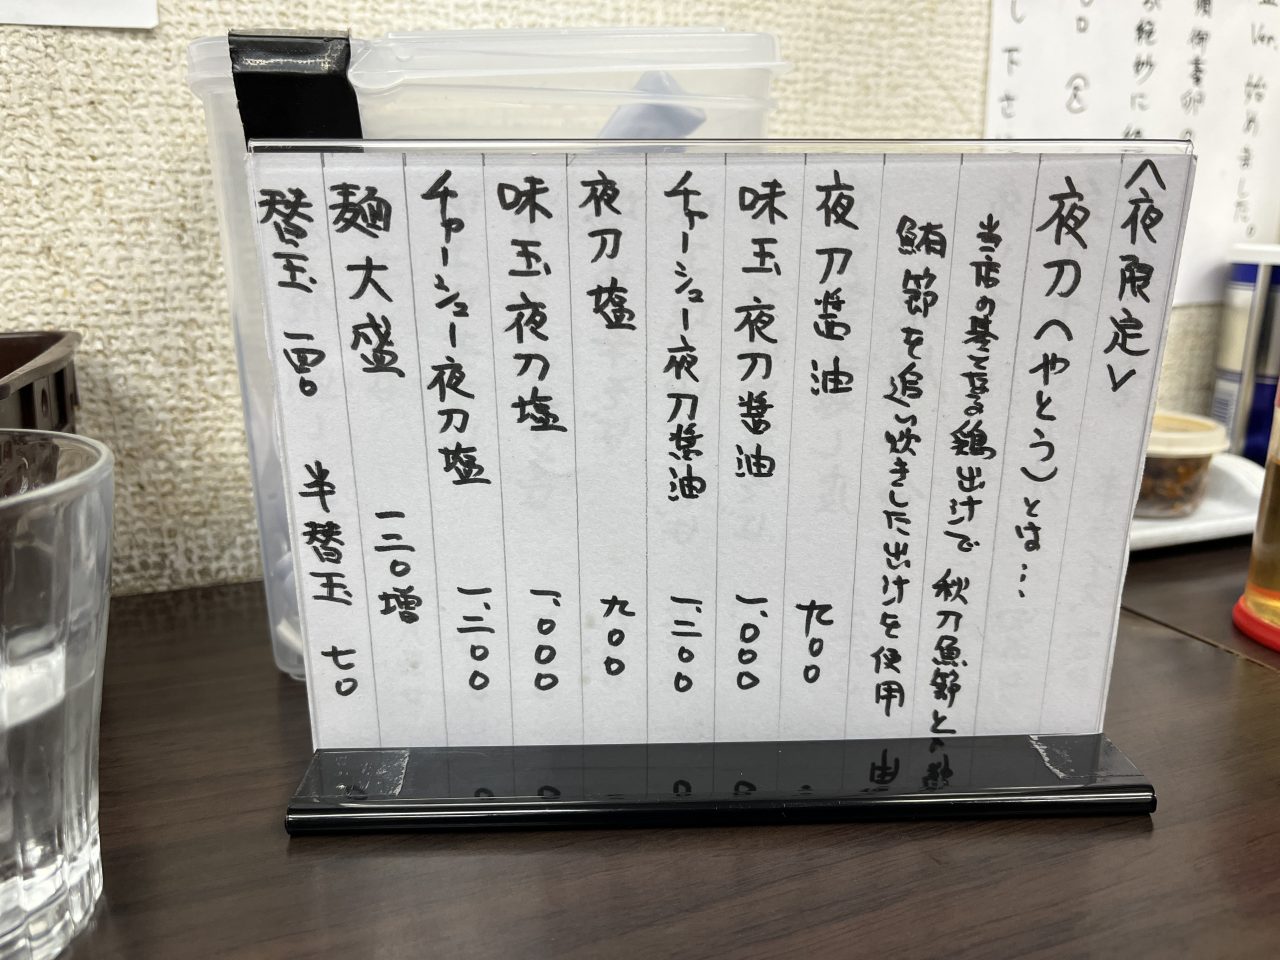 Ver. 始めました。
御養卵の
絶妙に
し下さ
〈夜限定〉
夜刀〈やとう〉とは…
当店の基となる鶏出汁で 秋刀魚節と
鮪節を追い炊きした出汁を使用
夜刀醤油 九〇〇
味玉夜刀醤油 一、〇〇〇
チャーシュー夜刀醤油 一、二〇〇
夜刀塩 九〇〇
味玉夜刀塩 一、〇〇〇
チャーシュー夜刀塩 一、二〇〇
麺大盛 一二〇増
替玉 一四〇 半替玉 七〇